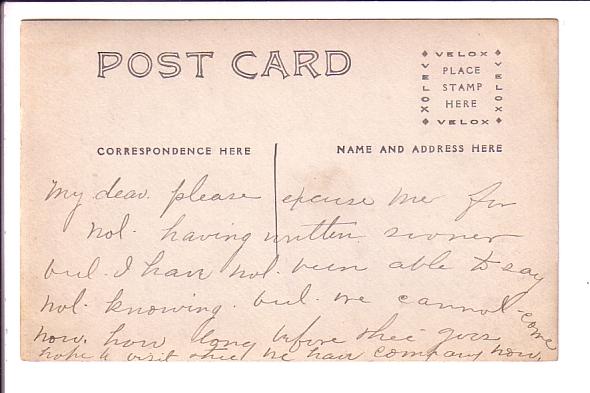 POST CARD
VELOX
VELOX
PLACE
STAMP
HERE
VELOX
VELOX
CORRESPONDENCE HERE
NAME AND ADDRESS HERE
My dear. please excuse me for
not. having written sooner
but. I have not. been able to say
not. knowing. but. we cannot come
now. how long before she goes
hope to visit she we have company now.